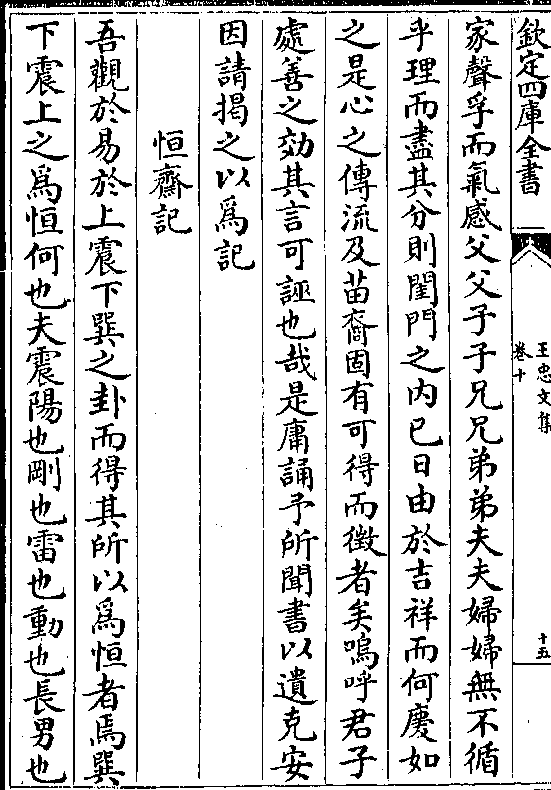 欽定四庫全書
王忠文集
卷十
十五
家聲孚而氣感父父子子兄兄弟弟夫夫婦婦無不循
乎理而盡其分則閨門之內已日由於吉祥而何慶如
之是心之傳流及苗裔固有可得而徴者矣嗚呼君子
處善之効其言可誣也哉是庸誦予所聞書以遺克安
因請揭之以為記
恒齋記
吾觀於易於上震下巽之卦而得其所以為恒者焉巽
下震上之為恒何也夫震陽也剛也雷也動也長男也